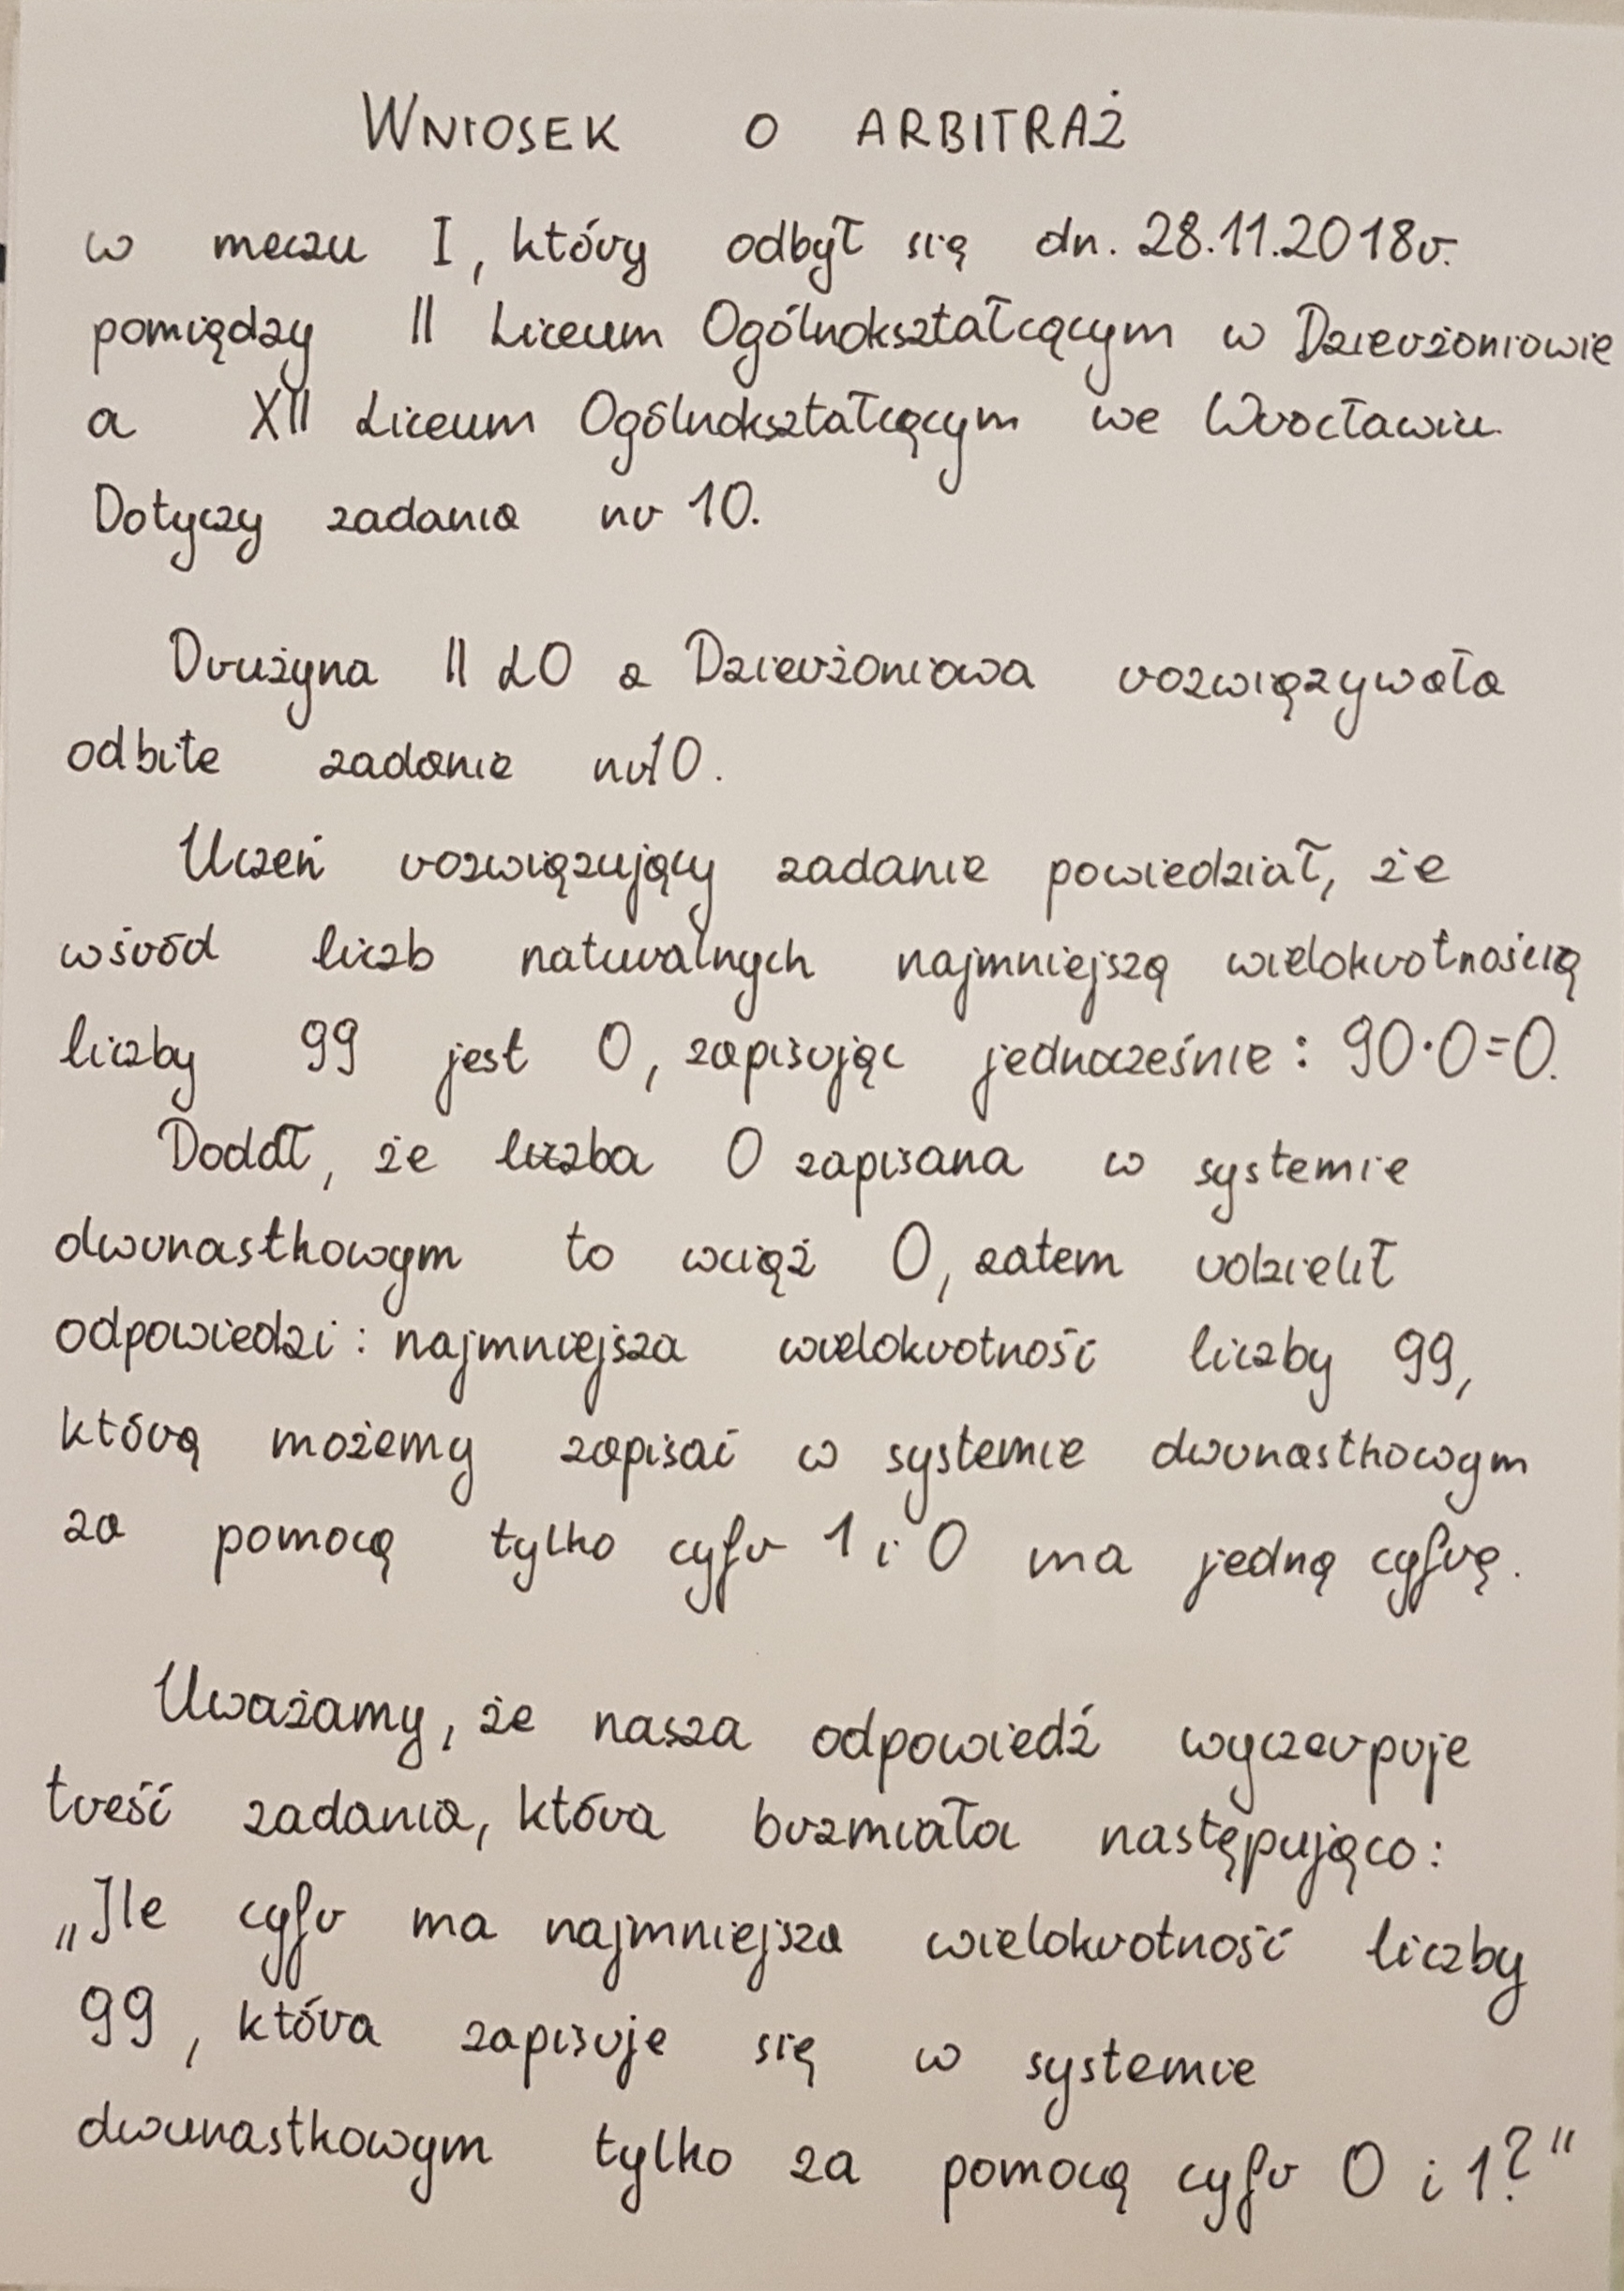 WNIOSEK O ARBITRAŻ
w meczu I, który odbył się dn. 28.11.2018r.
pomiędzy II Liceum Ogólnokształcącym w Dzierżoniowie
a XII Liceum Ogólnokształcącym we Wrocławiu.
Dotyczy zadania nr 10.
Drużyna II LO z Dzierżoniowa rozwiązywała
odbite zadanie nr 10.
Uczeń rozwiązujący zadanie powiedział, że
wśród liczb naturalnych najmniejszą wielokrotnością
liczby 99 jest 0, zapisując jednocześnie: 90·0=0.
Dodał, że liczba 0 zapisana w systemie
dwunastkowym to wciąż 0, zatem udzielił
odpowiedzi: najmniejsza wielokrotność liczby 99,
którą możemy zapisać w systemie dwunastkowym
za pomocą tylko cyfr 1 i 0 ma jedną cyfrę.
Uważamy, że nasza odpowiedź wyczerpuje
treść zadania, która brzmiała następująco:
„Ile cyfr ma najmniejsza wielokrotność liczby
99, która zapisuje się w systemie
dwunastkowym tylko za pomocą cyfr 0 i 1?"